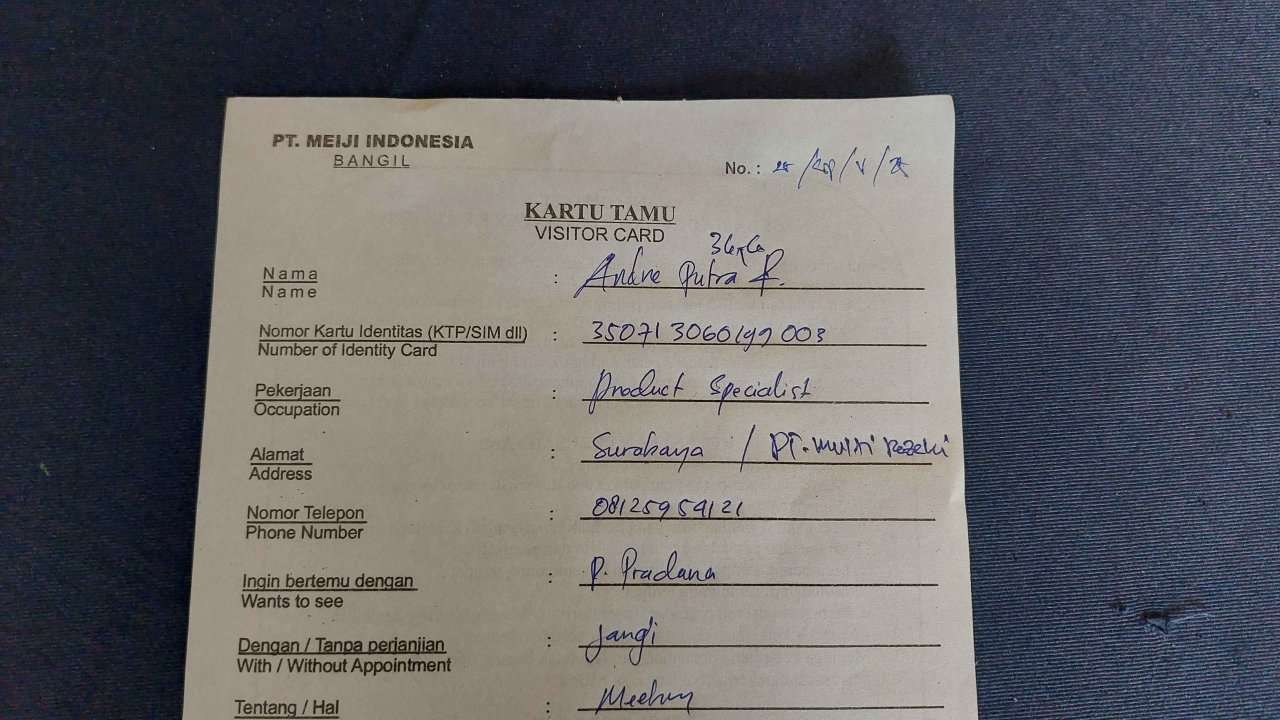 PT. MEIJI INDONESIA
BANGIL
No. :
KARTU TAMU
VISITOR CARD
Nama : Andre Putra P.
Name
Nomor Kartu Identitas (KTP/SIM dll) : 350713060199003
Number of Identity Card
Pekerjaan : Product Specialist
Occupation
Alamat : Surabaya / PT. Multi Rezeki
Address
Nomor Telepon : 08125959121
Phone Number
Ingin bertemu dengan : P. Pradana
Wants to see
Dengan / Tanpa perjanjian : Janji
With / Without Appointment
Tentang / Hal : Meeting